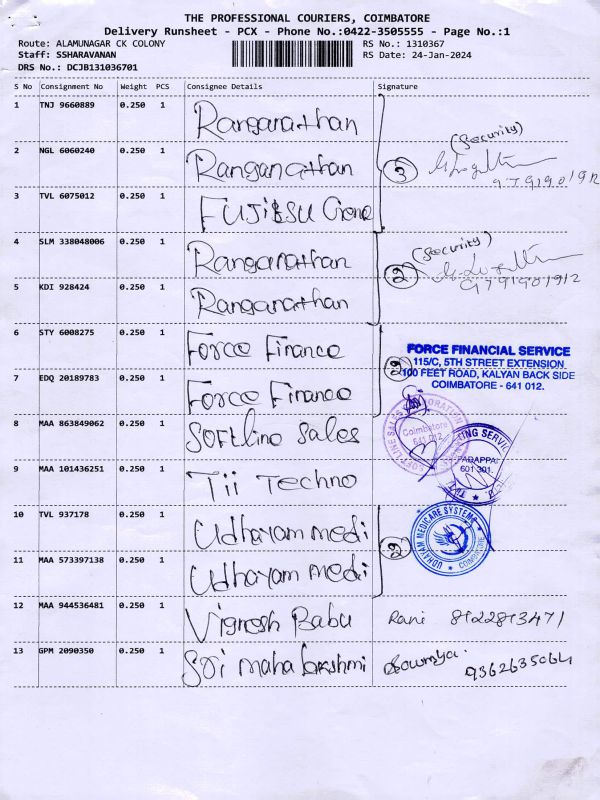 THE PROFESSIONAL COURIERS, COIMBATORE
Delivery Runsheet - PCX - Phone No.:0422-3505555 - Page No.:1
Route: ALAMUNAGAR CK COLONY
RS No.: 1310367
Staff: SSHARAVANAN
RS Date: 24-Jan-2024
DRS No.: DCJB131036701
S No Consignment No Weight PCS Consignee Details Signature
1 TNJ 9660889 0.250 1 Ranganathan
(Security)
2 NGL 6060240 0.250 1 Ranganathan 3
9791901912
3 TVL 6075012 0.250 1 FUJitSU Gene
4 SLM 338048006 0.250 1 Ranganathan (Security)
2 9791901912
5 KDI 928424 0.250 1 Ranganathan
6 STY 6008275 0.250 1 Force Finance
FORCE FINANCIAL SERVICE
2 115/C, 5TH STREET EXTENSION
7 EDQ 20189783 0.250 1 Force Finance 100 FEET ROAD, KALYAN BACK SIDE
COIMBATORE - 641 012.
8 MAA 863849062 0.250 1 Softline Sales
SOFTLINE SALES CORPORATION
Coimbatore
641 012
9 MAA 101436251 0.250 1 Tii Techno
PADAPPAI
601 301.
10 TVL 937178 0.250 1 Udhayam medi
2 UDHAYAM MEDICARE SYSTEMS
COIMBATORE
11 MAA 573397138 0.250 1 Udhayam medi
12 MAA 944536481 0.250 1 Vignesh Babu Rani 8122813471
13 GPM 2090350 0.250 1 Sri maha lakshmi Sowmya. 9362635064